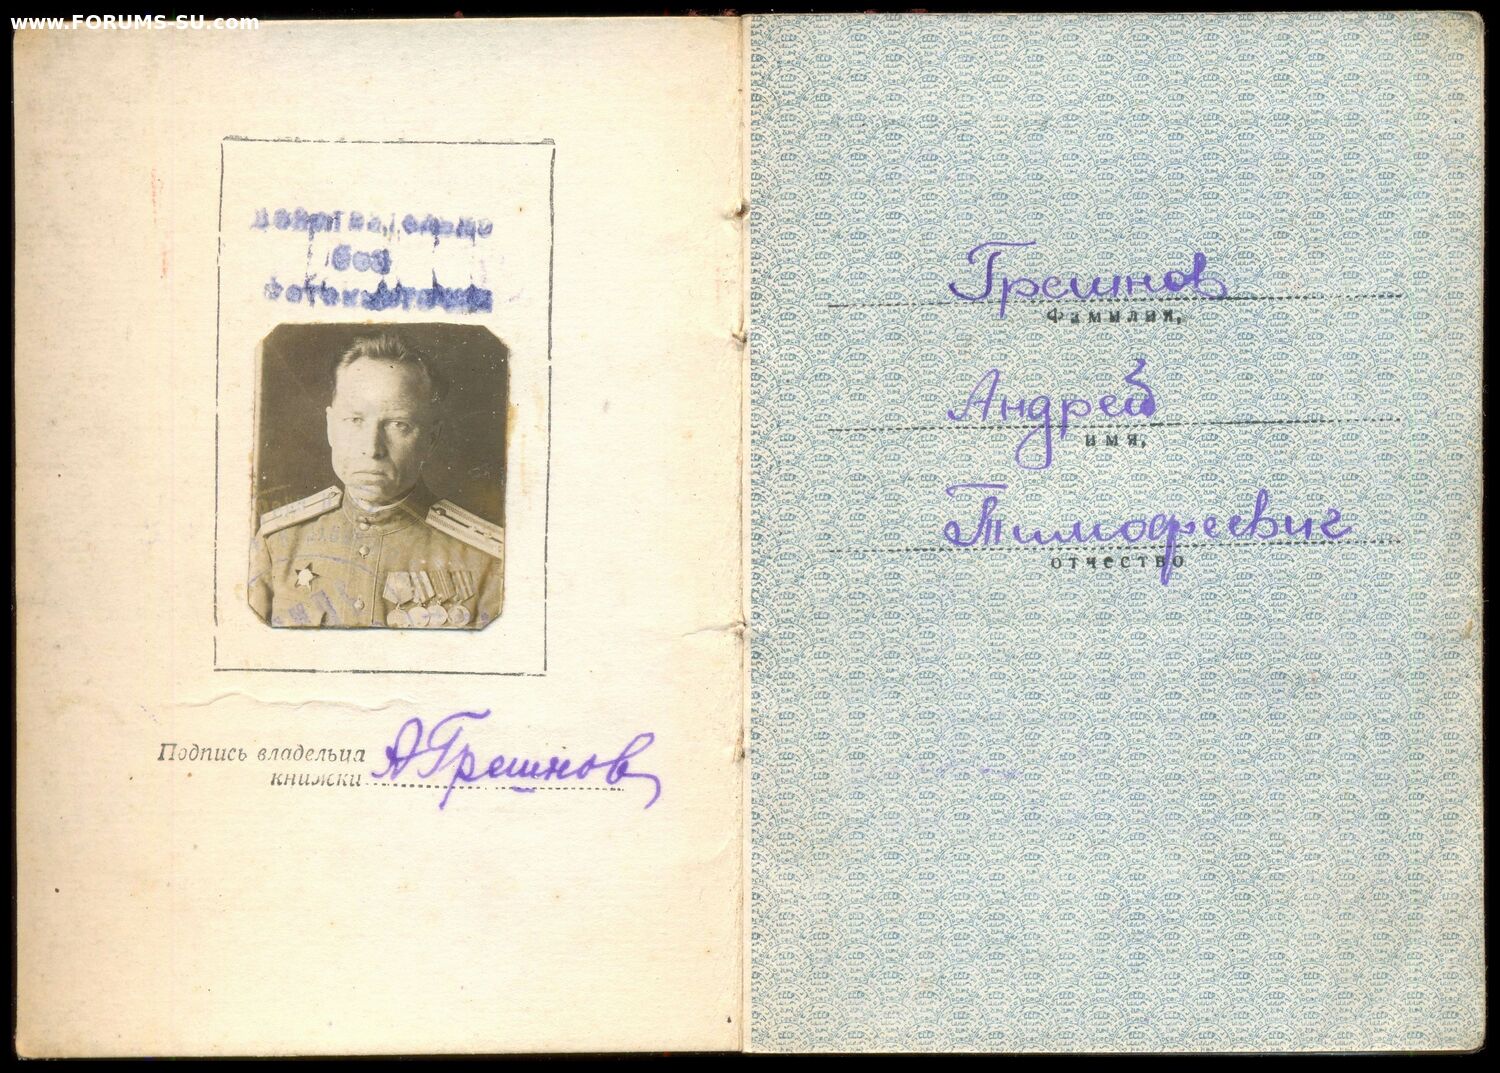 www.FORUMS-SU.com
Действительно
без
фотокарточки
Подпись владельца
книжки А Грешнов
Грешнов
Фамилия,
Андрей
имя,
Тимофеевич
отчество